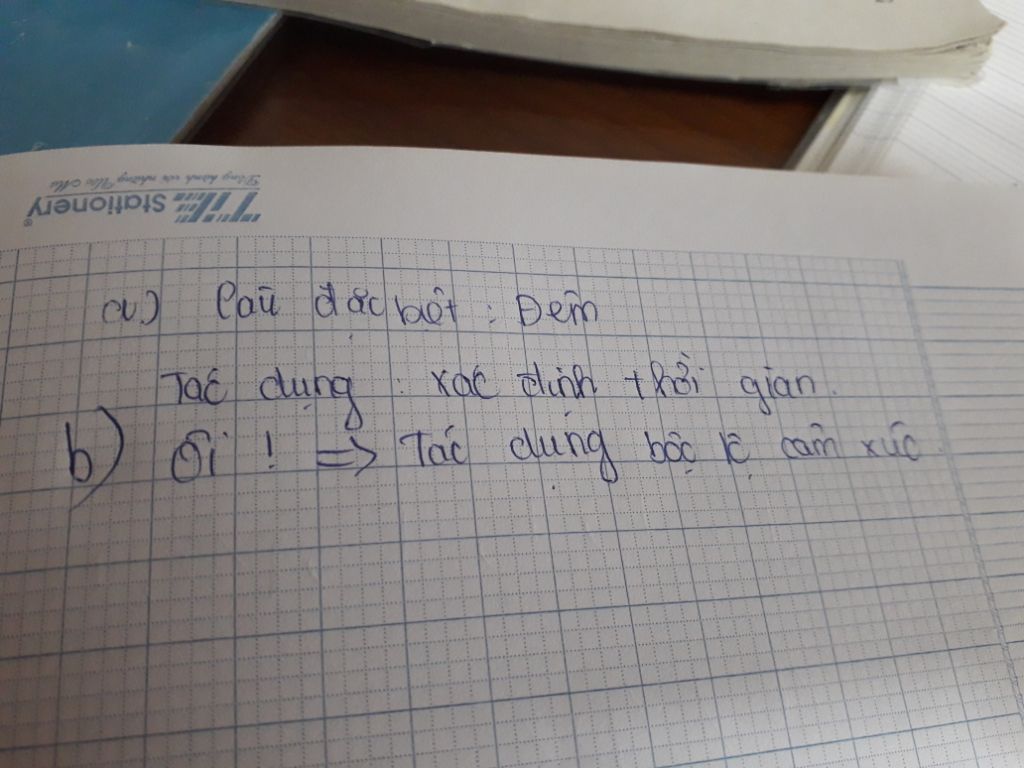 Đồng hành với những Ước Mơ
TTE Stationery®
a.) Câu đặc biệt : Đêm
Tác dụng : xác định thời gian.
b) Ôi ! => Tác dụng bộc lộ cảm xúc.